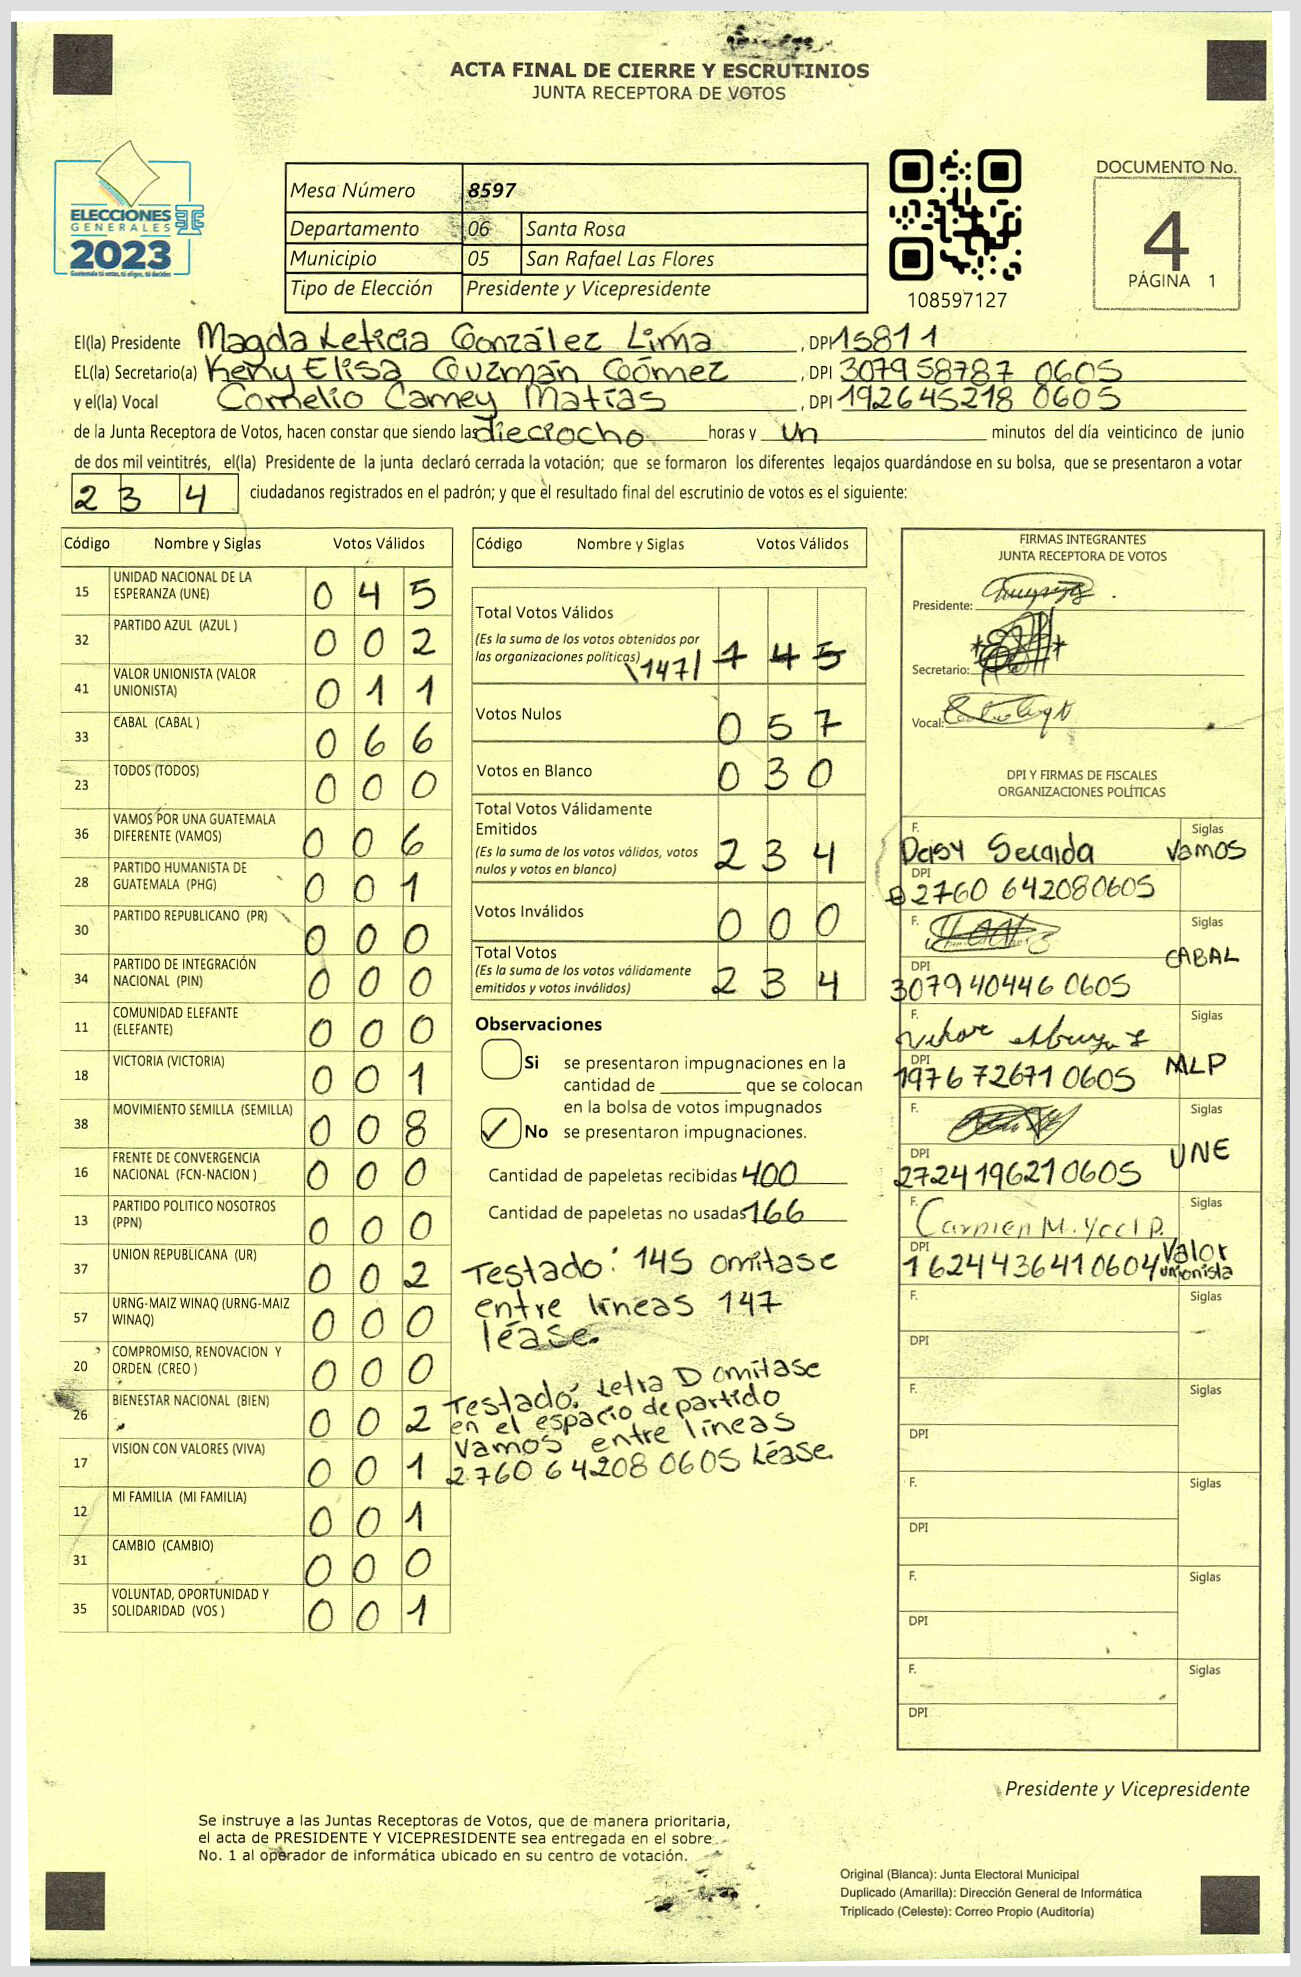 ACTA FINAL DE CIERRE Y ESCRUTINIOS
JUNTA RECEPTORA DE VOTOS
ELECCIONES
GENERALES
2023
Guatemala tú votas, tú eliges, tú decides
Mesa Número 8597
Departamento 06 Santa Rosa
Municipio 05 San Rafael Las Flores
Tipo de Elección Presidente y Vicepresidente
108597127
DOCUMENTO No.
4
PÁGINA 1
El(la) Presidente Magda Leticia González Lima, DPI 15811
EL(la) Secretario(a) Keny Elisa Guzmán Gómez, DPI 307958787 0605
y el(la) Vocal Cornelio Camey Matías, DPI 192645218 0605
de la Junta Receptora de Votos, hacen constar que siendo las dieciocho horas y un minutos del día veinticinco de junio
de dos mil veintitrés, el(la) Presidente de la junta declaró cerrada la votación; que se formaron los diferentes legajos guardándose en su bolsa, que se presentaron a votar
2 3 4 ciudadanos registrados en el padrón; y que el resultado final del escrutinio de votos es el siguiente:
Código Nombre y Siglas Votos Válidos
15 UNIDAD NACIONAL DE LA ESPERANZA (UNE) 0 4 5
32 PARTIDO AZUL (AZUL ) 0 0 2
41 VALOR UNIONISTA (VALOR UNIONISTA) 0 1 1
33 CABAL (CABAL ) 0 6 6
23 TODOS (TODOS) 0 0 0
36 VAMOS POR UNA GUATEMALA DIFERENTE (VAMOS) 0 0 6
28 PARTIDO HUMANISTA DE GUATEMALA (PHG) 0 0 1
30 PARTIDO REPUBLICANO (PR) 0 0 0
34 PARTIDO DE INTEGRACIÓN NACIONAL (PIN) 0 0 0
11 COMUNIDAD ELEFANTE (ELEFANTE) 0 0 0
18 VICTORIA (VICTORIA) 0 0 1
38 MOVIMIENTO SEMILLA (SEMILLA) 0 0 8
16 FRENTE DE CONVERGENCIA NACIONAL (FCN-NACION ) 0 0 0
13 PARTIDO POLITICO NOSOTROS (PPN) 0 0 0
37 UNION REPUBLICANA (UR) 0 0 2
57 URNG-MAIZ WINAQ (URNG-MAIZ WINAQ) 0 0 0
20 COMPROMISO, RENOVACION Y ORDEN. (CREO ) 0 0 0
26 BIENESTAR NACIONAL (BIEN) 0 0 2
17 VISION CON VALORES (VIVA) 0 0 1
12 MI FAMILIA (MI FAMILIA) 0 0 1
31 CAMBIO (CAMBIO) 0 0 0
35 VOLUNTAD, OPORTUNIDAD Y SOLIDARIDAD (VOS ) 0 0 1
Código Nombre y Siglas Votos Válidos
Total Votos Válidos
(Es la suma de los votos obtenidos por
las organizaciones políticas) \147/ 1 4 5
Votos Nulos 0 5 7
Votos en Blanco 0 3 0
Total Votos Válidamente
Emitidos
(Es la suma de los votos válidos, votos
nulos y votos en blanco) 2 3 4
Votos Inválidos 0 0 0
Total Votos
(Es la suma de los votos válidamente
emitidos y votos inválidos) 2 3 4
Observaciones
Si se presentaron impugnaciones en la
cantidad de ________ que se colocan
en la bolsa de votos impugnados
No se presentaron impugnaciones.
Cantidad de papeletas recibidas 400
Cantidad de papeletas no usadas 166
Testado: 145 omitase
entre líneas 147
léase.
Testado: Letra D omitase
en el espacio de partido
Vamos entre líneas
2760 64208 0605 Léase.
FIRMAS INTEGRANTES
JUNTA RECEPTORA DE VOTOS
Presidente:
Secretario:
Vocal:
DPI Y FIRMAS DE FISCALES
ORGANIZACIONES POLÍTICAS
F. Siglas
Deisy Secaida Vamos
DPI
2760 64208 0605
F. Siglas
CABAL
DPI
307940446 0605
F. Siglas
MLP
DPI
1976 72671 0605
F. Siglas
UNE
DPI
272419621 0605
F. Siglas
Carmen M.
DPI Valor
162443641 0604 unionista
F. Siglas
DPI
F. Siglas
DPI
F. Siglas
DPI
F. Siglas
DPI
F. Siglas
DPI
Presidente y Vicepresidente
Se instruye a las Juntas Receptoras de Votos, que de manera prioritaria,
el acta de PRESIDENTE Y VICEPRESIDENTE sea entregada en el sobre
No. 1 al operador de informática ubicado en su centro de votación.
Original (Blanca): Junta Electoral Municipal
Duplicado (Amarilla): Dirección General de Informática
Triplicado (Celeste): Correo Propio (Auditoría)